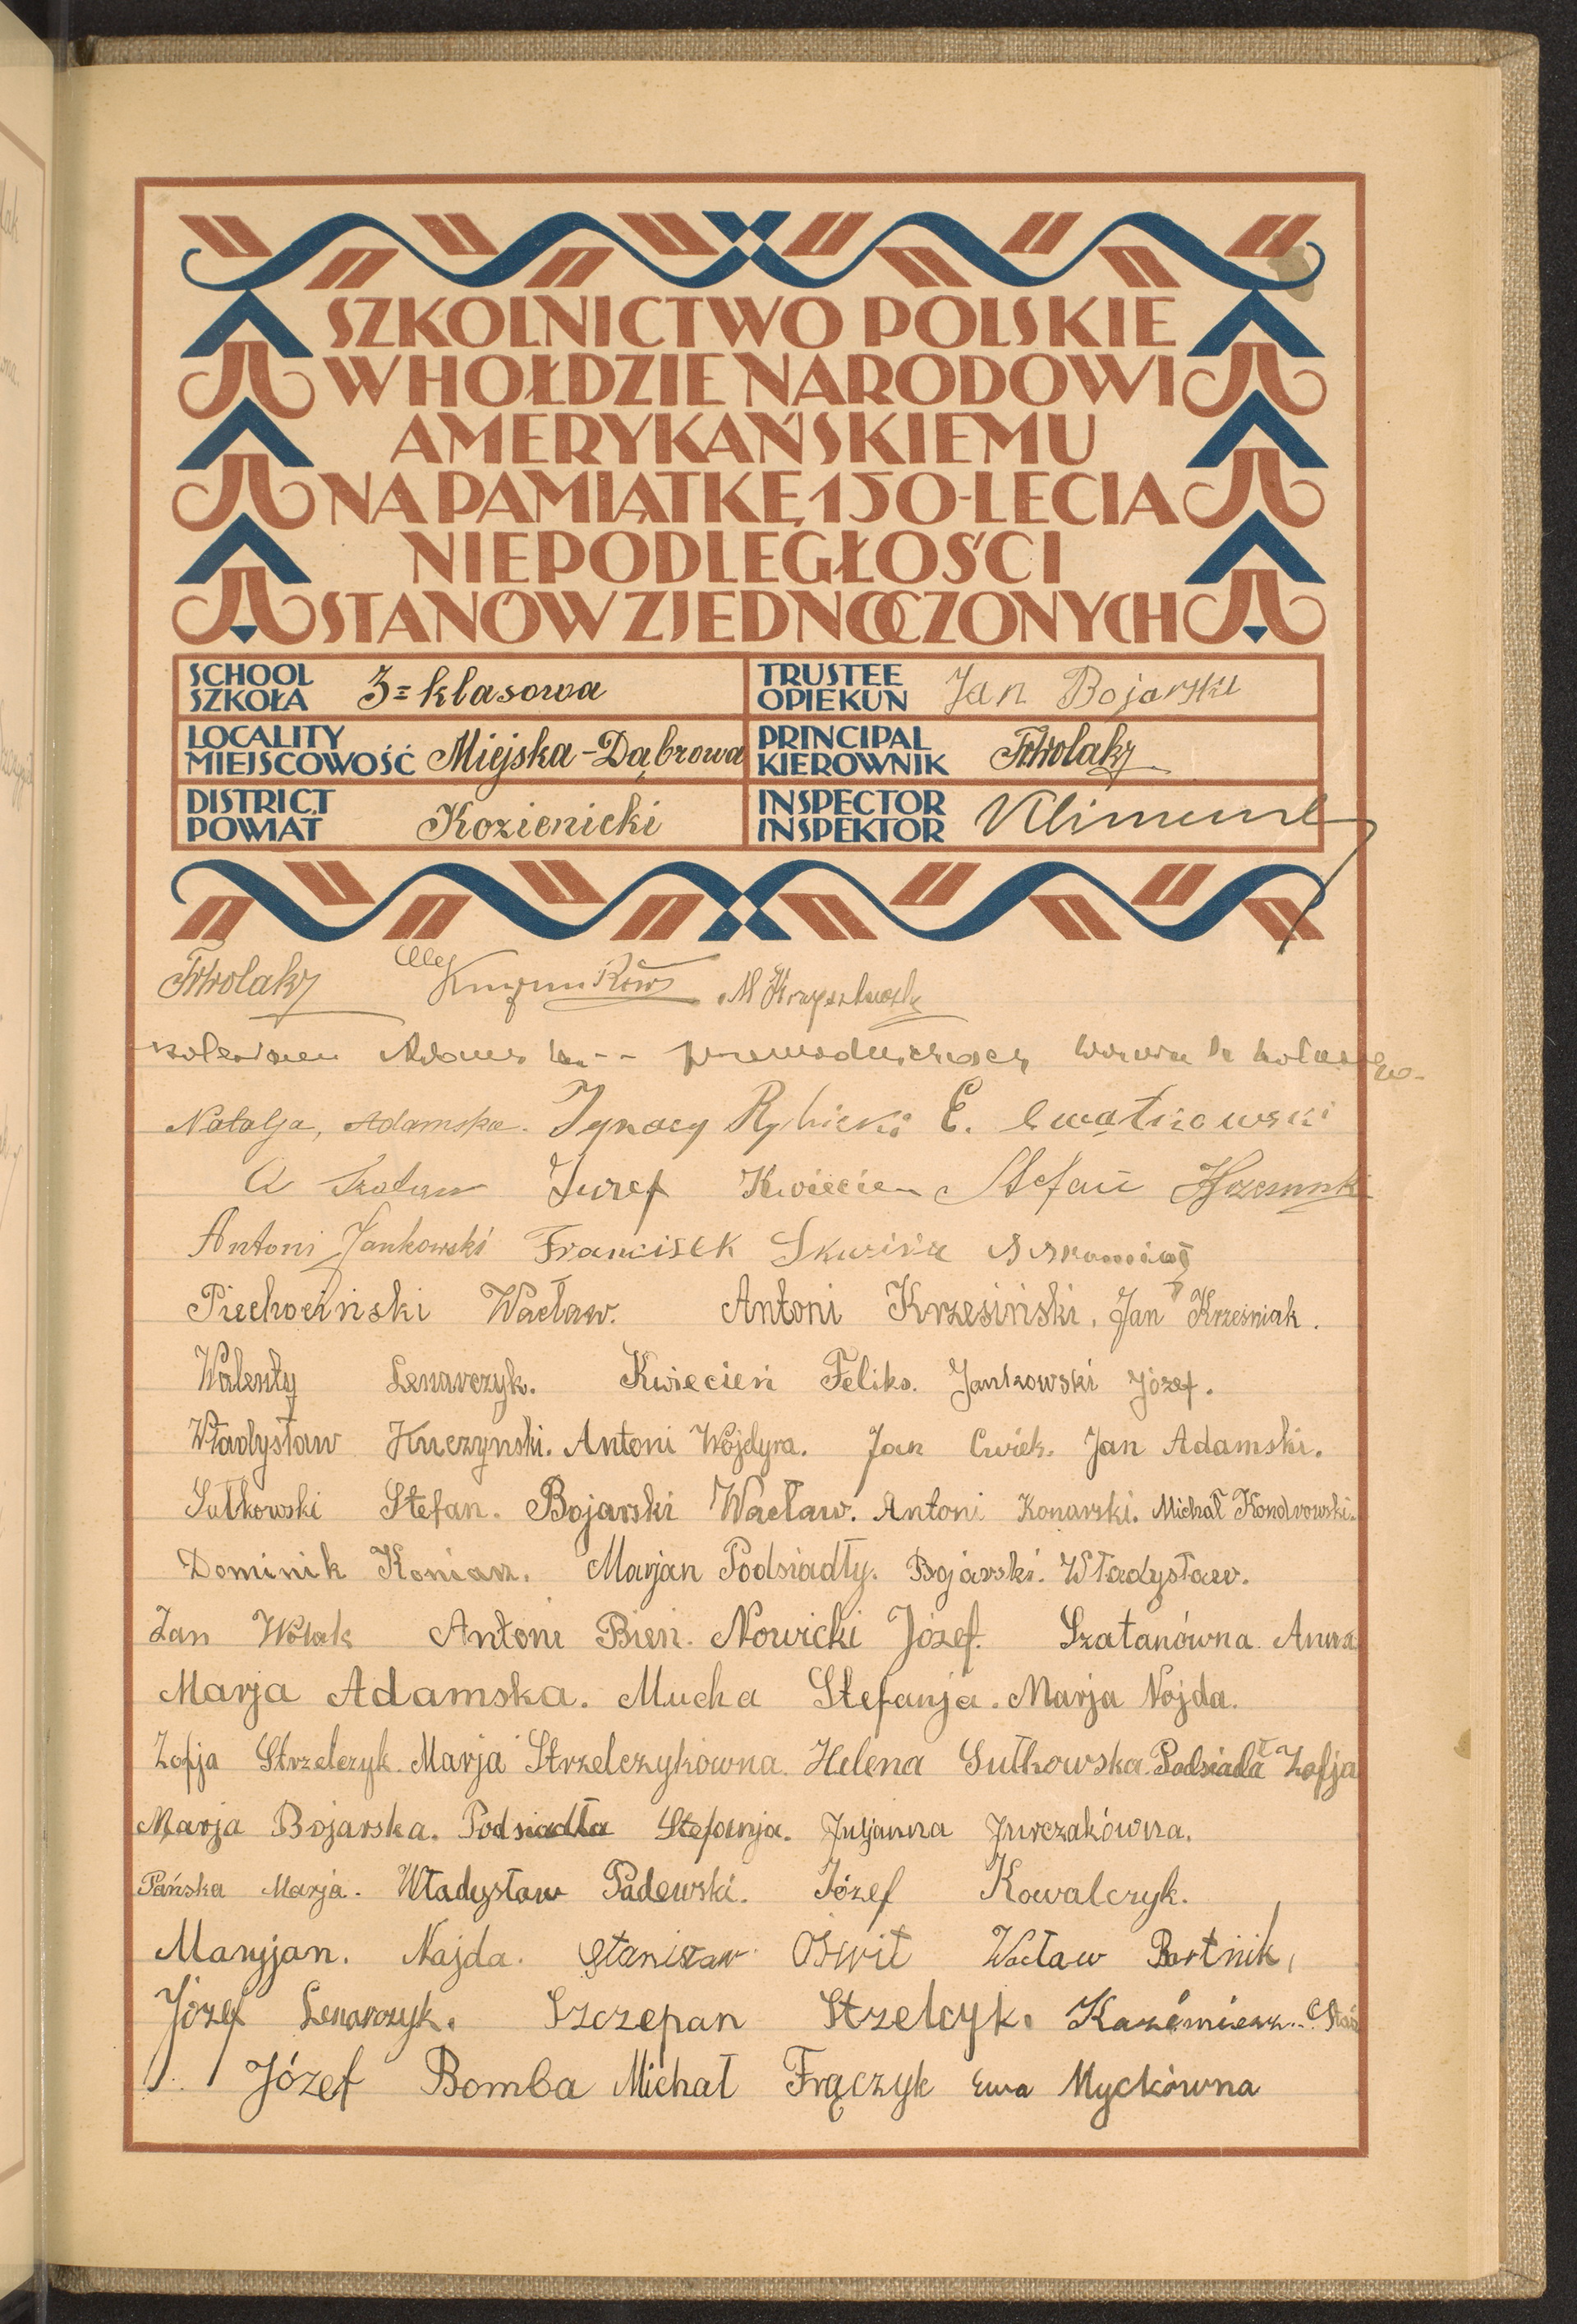 SZKOLNICTWO POLSKIE
W HOŁDZIE NARODOWI
AMERYKAŃSKIEMU
NA PAMIĄTKĘ 150-LECIA
NIEPODLEGŁOŚCI
STANÓW ZJEDNOCZONYCH
SCHOOL SZKOŁA 3=klasowa TRUSTEE OPIEKUN Jan Bojarski
LOCALITY MIEJSCOWOŚĆ Miejska-Dąbrowa PRINCIPAL KIEROWNIK FWolak
DISTRICT POWIAT Kozienicki INSPECTOR INSPEKTOR
FWolak
Natalja, Adamska. Ignacy Rybicki E.
Józef Kwiecien Stefan
Antoni Jankowski Francisek
Piechociński Wacław. Antoni Krzesiński, Jan Krześniak.
Walenty Lenarczyk. Kwiecień Feliks. Jankowski Józef.
Władysław Kuczynski. Antoni Wójdyra. Jan Cwiek. Jan Adamski.
Sułkowski Stefan. Bojarski Wacław. Antoni Konarski. Michał
Dominik Koniarz. Marjan Podsiadły. Bojarski. Władysław.
Jan Wolak Antoni Bień. Nowicki Józef. Szatanówna Anna
Marja Adamska. Mucha Stefanja. Marja Nojda.
Zofja Strzelczyk. Marja Strzelczykówna. Helena Sułkowska. Podsiadła Zofja
Marja Bojarska. Podsiadła Stefanja. Juljanna Jurczakówna.
Pańska Marja. Władysław Padewski. Józef Kowalczyk.
Maryjan. Najda. Stanisław Oświt Wacław Bartnik,
Józef Lenarczyk. Szczepan Strzelcyk. Kazimierz
Józef Bomba Michał Frączyk Ewa Myckówna